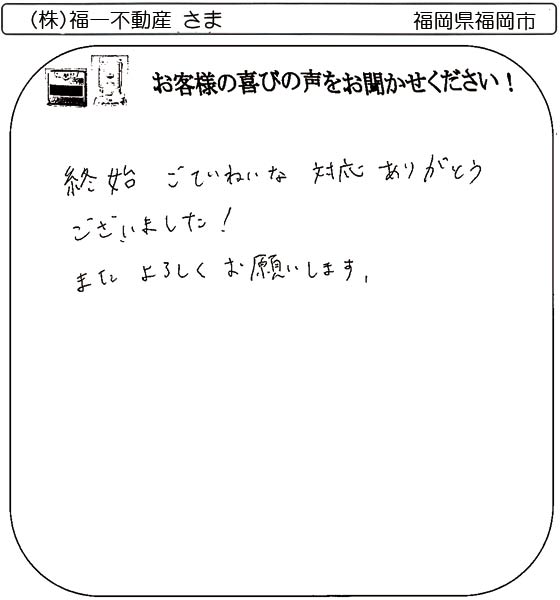 (株)福一不動産 さま 福岡県福岡市
お客様の喜びの声をお聞かせください！
終始 ごていねいな 対応 ありがとう
ございました！
また よろしく お願いします。